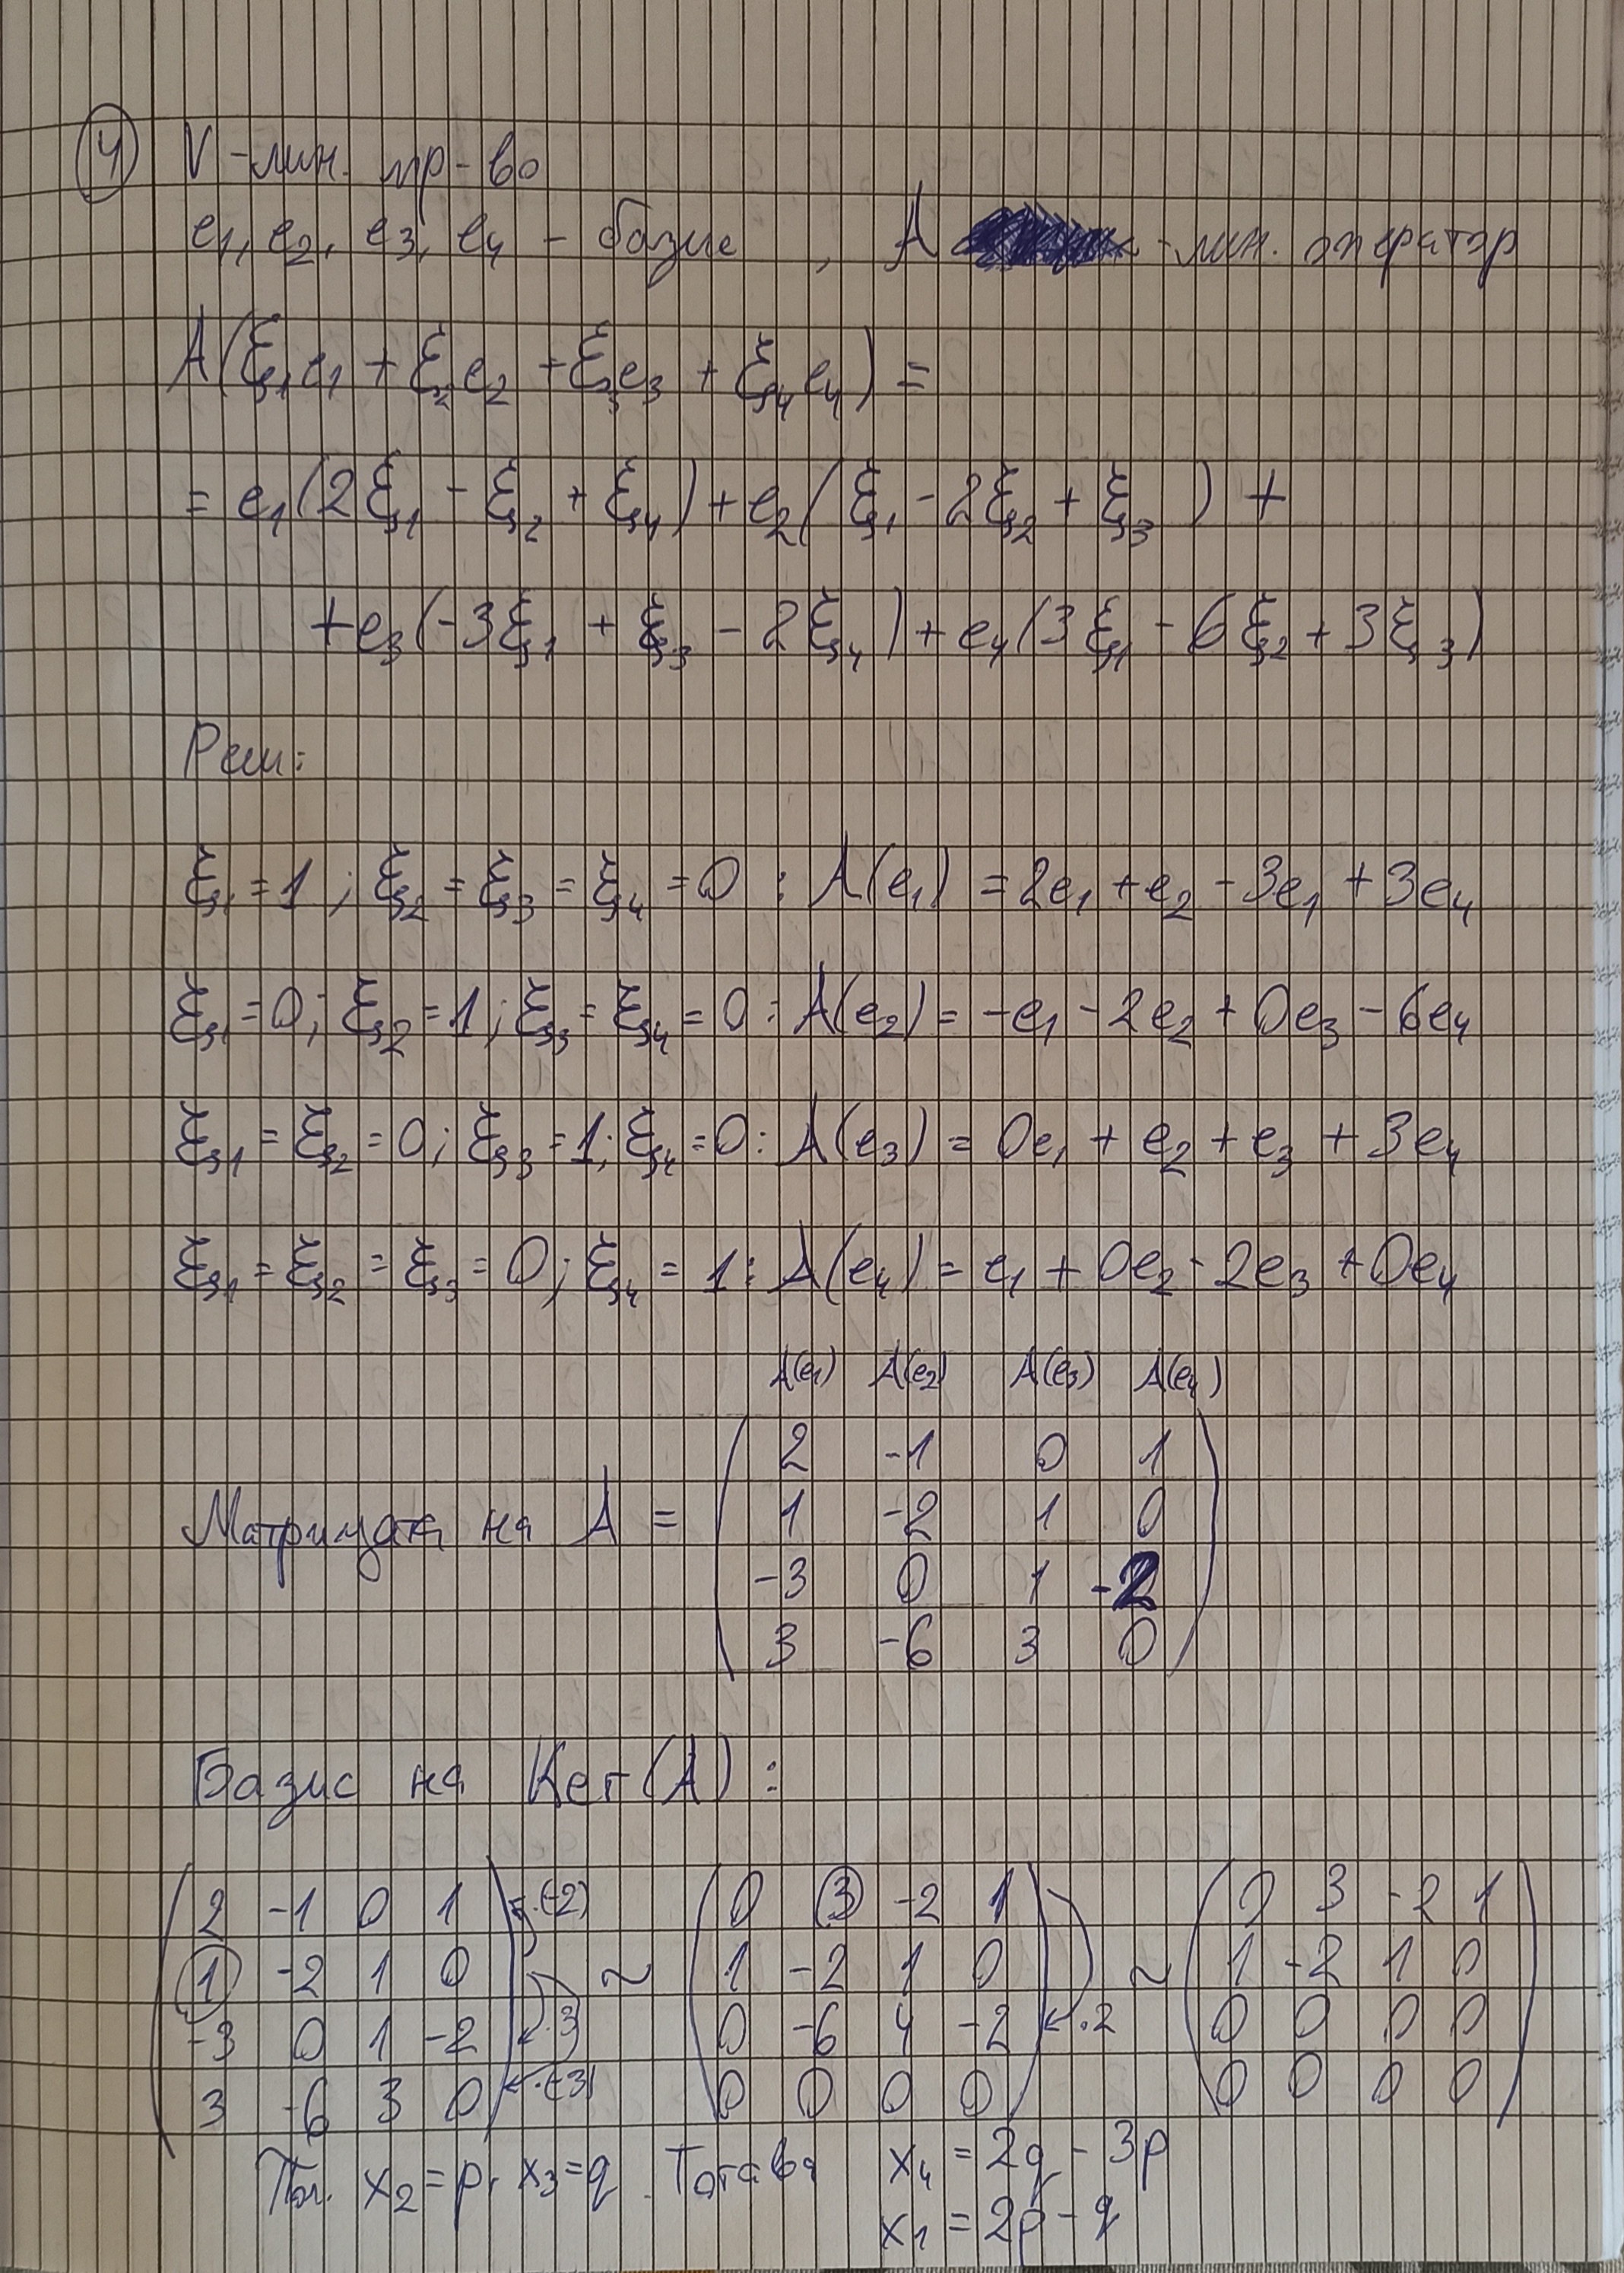 ④ V - лин. пр-во
e₁, e₂, e₃, e₄ - базис , A - лин. оператор
A(ξ₁e₁ + ξ₂e₂ + ξ₃e₃ + ξ₄e₄) =
= e₁(2ξ₁ - ξ₂ + ξ₄) + e₂(ξ₁ - 2ξ₂ + ξ₃) +
+ e₃(-3ξ₁ + ξ₃ - 2ξ₄) + e₄(3ξ₁ - 6ξ₂ + 3ξ₃)
Реш:
ξ₁ = 1 ; ξ₂ = ξ₃ = ξ₄ = 0 : A(e₁) = 2e₁ + e₂ - 3e₁ + 3e₄
ξ₁ = 0 ; ξ₂ = 1 ; ξ₃ = ξ₄ = 0 : A(e₂) = -e₁ - 2e₂ + 0e₃ - 6e₄
ξ₁ = ξ₂ = 0 ; ξ₃ = 1 ; ξ₄ = 0 : A(e₃) = 0e₁ + e₂ + e₃ + 3e₄
ξ₁ = ξ₂ = ξ₃ = 0 ; ξ₄ = 1 : A(e₄) = e₁ + 0e₂ - 2e₃ + 0e₄
A(e₁) A(e₂) A(e₃) A(e₄)
2 -1 0 1
Матрицата на A = 1 -2 1 0
-3 0 1 -2
3 -6 3 0
Базис на Ker(A) :
2 -1 0 1 .(-2) 0 3 -2 1 0 3 -2 1
1 -2 1 0 ~ 1 -2 1 0 ~ 1 -2 1 0
-3 0 1 -2 .3 0 -6 4 -2 .2 0 0 0 0
3 -6 3 0 .(-3) 0 0 0 0 0 0 0 0
Пол. x₂ = p, x₃ = q. Тогава x₄ = 2q - 3p
x₁ = 2p - q